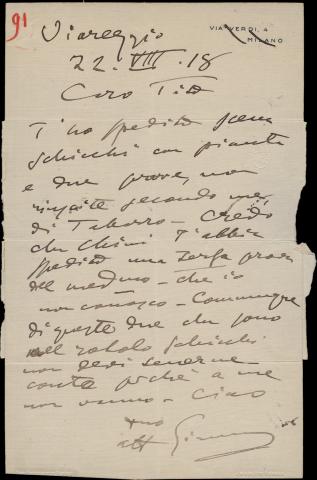 91
VIA VERDI, 4
MILANO
Viareggio
22. VIII. 18
Caro Tito
T'ho spedito scena
Schicchi con pianta
e due prove, non
riuscite secondo me,
di Tabarro - Credo
che Chini t'abbia
spedito una terza prova
del medesimo - che io
non conosco - Comunque
di queste due che sono
nel rotolo Schicchi
non devi tenerne
conto poichè a me
non vanno - Ciao
tuo
aff